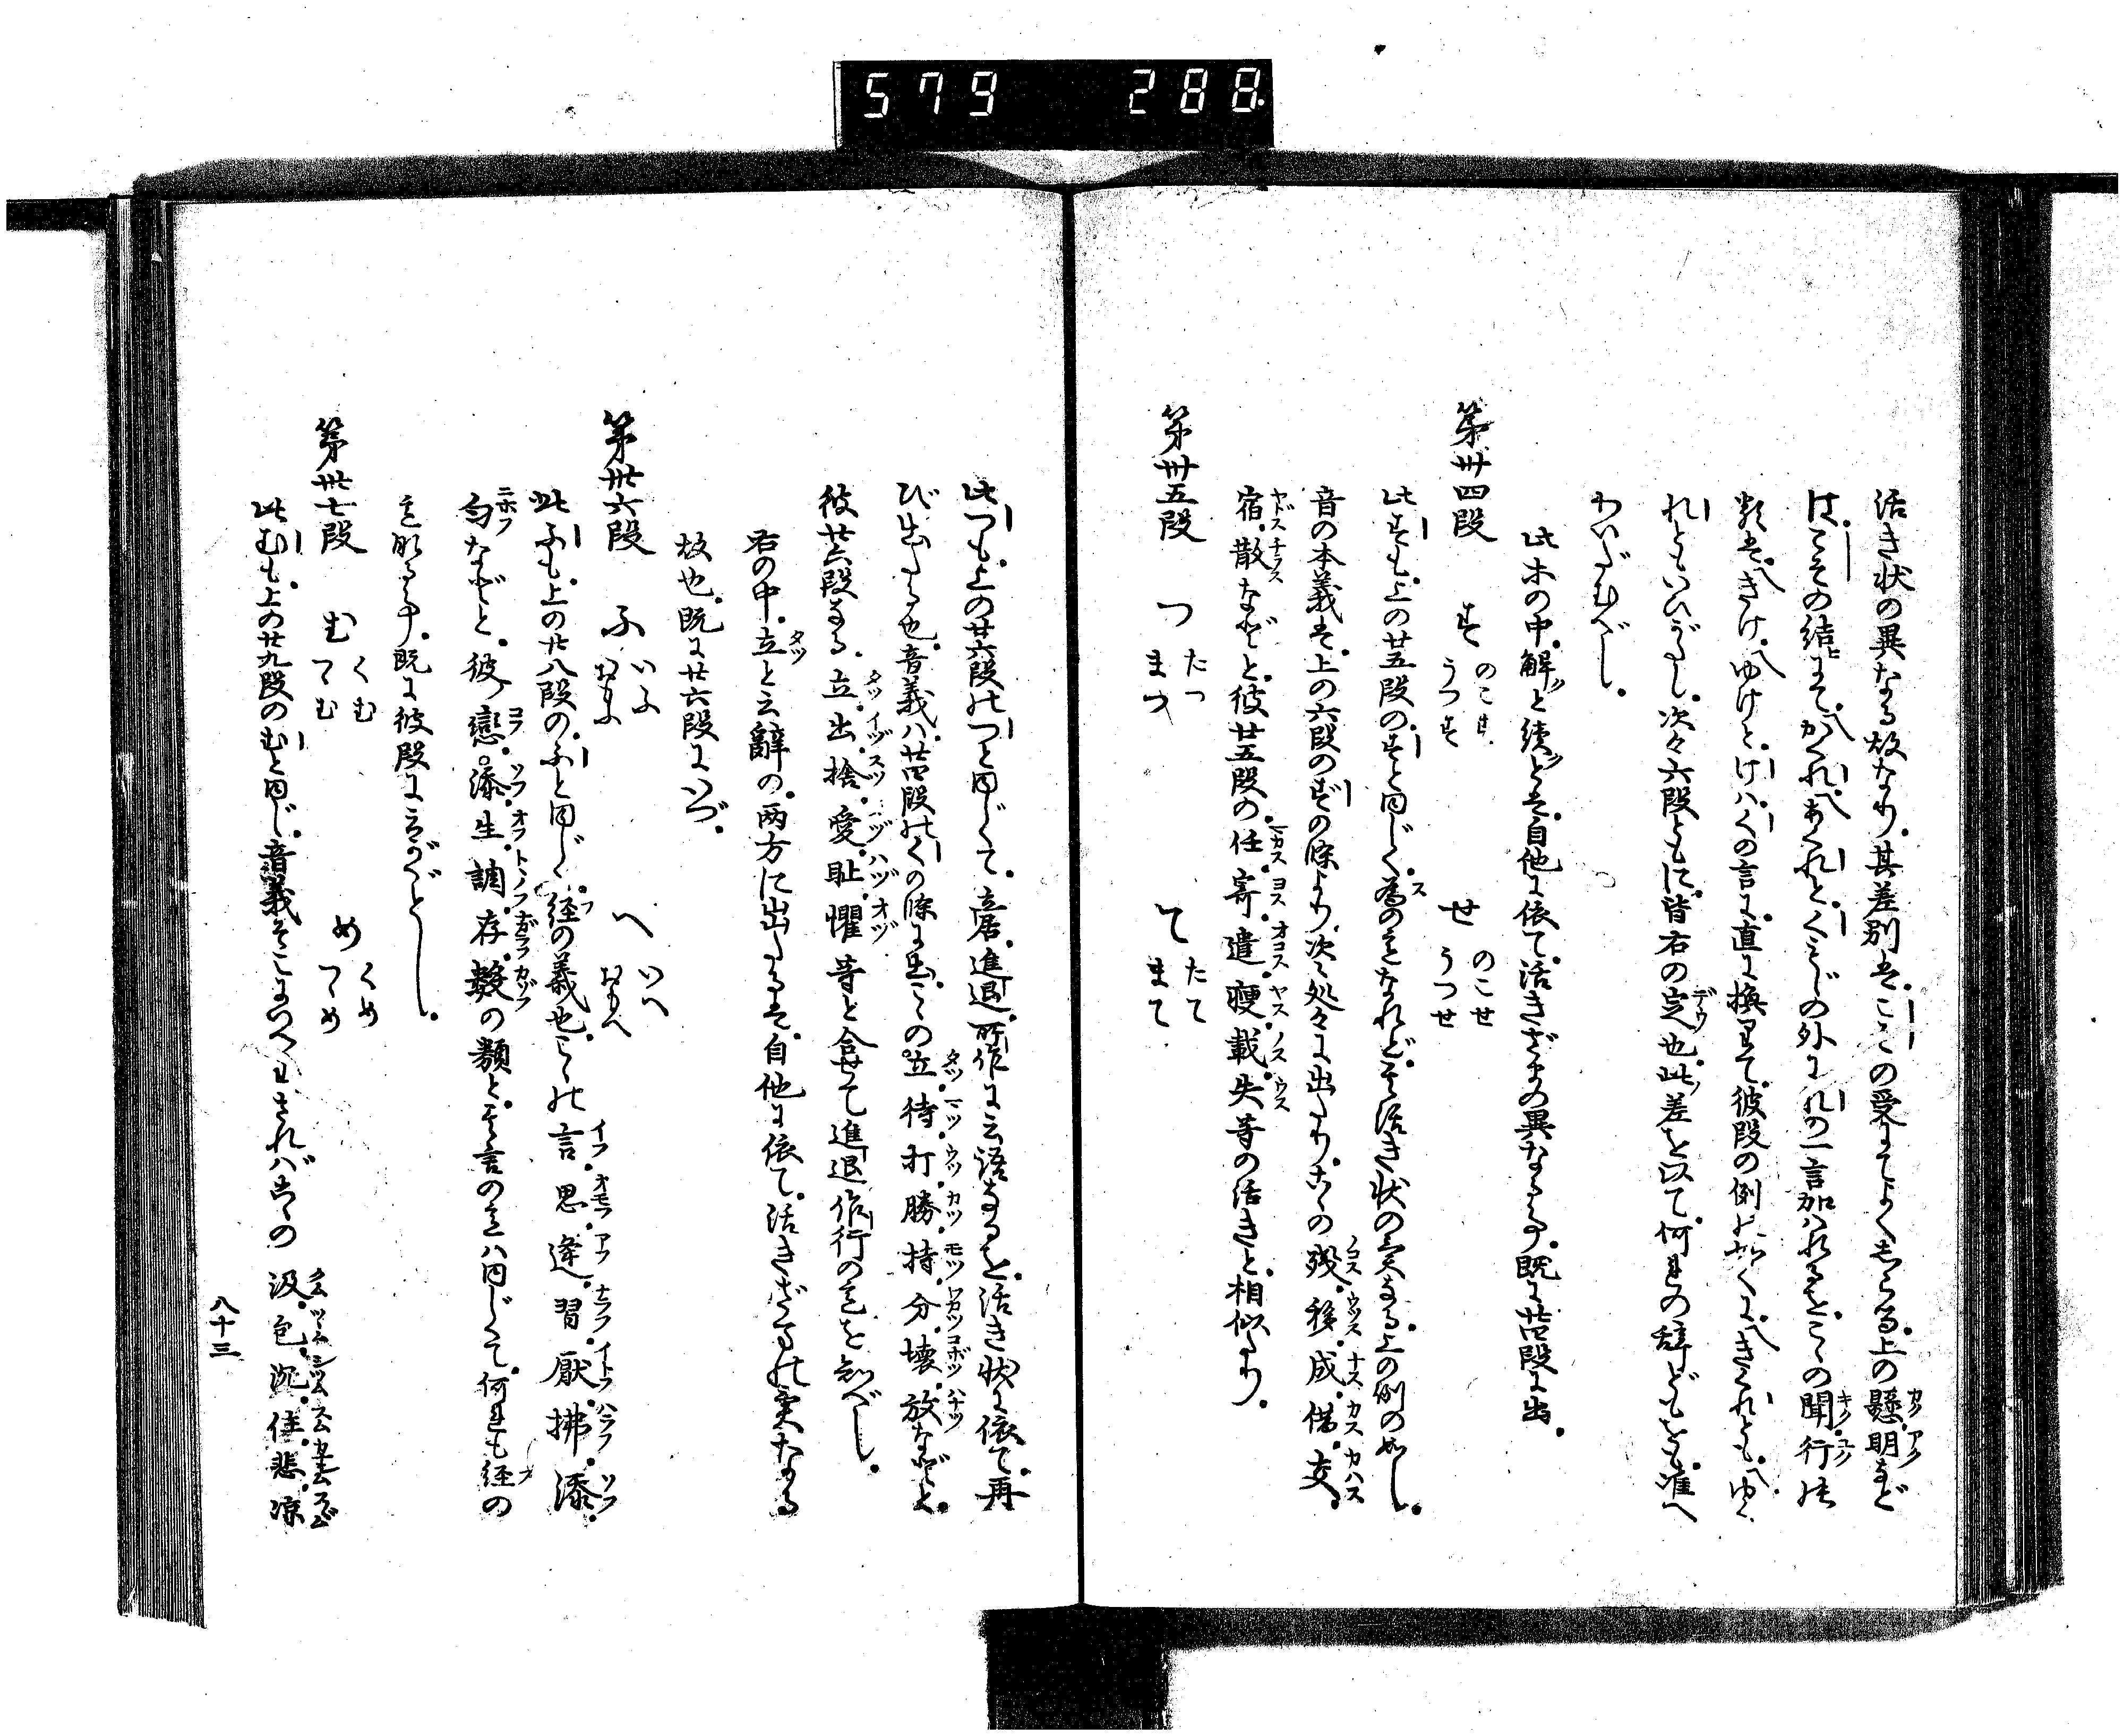 579 288
活き状の異なる故なり。其差別は、こゝの受にてよくしらる。上の懸明など
は。こその結にて、かくれ、あくれと、くもじの外に、れの一言加はれるを、こゝの聞行の
類は、きけ、ゆけと、けハくの言に、直に換りて、彼段の例の如くに、きくれとも、ゆく
れともいひがたし。次々六段ともに、皆右の定也。此差を以て、何れの辞どもをも、准へ
わいだむべし。
此等の中、解と続とは、自他に依て、活きざまの異なる事、既に廿四段に出。
第卅四段 す のこす うつす せ のこせ うつせ
此すも、上の廿五段の、すと同じく、為の意なれど、其活き状の実なる、上の例の如し。
音の本義は、上の六段のすの條より、次々処々に出たり。こゝの残、移、成、借、交、
宿、散などと、彼廿五段の任、寄、遣、痩、載、失等の活きと、相似たり。
第卅五段 つ たつ まつ て たて まて
此つも、上の廿六段のつと同じくて、立居、進退、所作に云語なるを、活き状に依て、再
び出たる也。音義ハ廿四段のくの條に出。こゝの立、待、打、勝、持、分、壊、放などと、
彼廿六段なる、立、出、捨、愛、耻、懼等と合せて進退作行の意を知べし。
右の中、立と云辭の、両方に出たるは、自他に依て、活きざまの実なる
故也。既に廿六段にいづ。
第卅六段 ふ いふ おもふ へ いへ おもへ
此ふも、上の廿八段の、ふと同じく、経の義也。こゝの言、思、逢、習、厭、拂、添、
匂などと、彼、戀、添、生、調、存、數の類と、其言の意ハ同じくて、何れも経の
意なる事、既に彼段に云るがごとし。
第卅七段 む くむ つむ め くめ つめ
此むも、上の廿九段のむと同じ。音義そこにいへり。されバこゝの 汲、包、沈、住、悲、凉
八十三